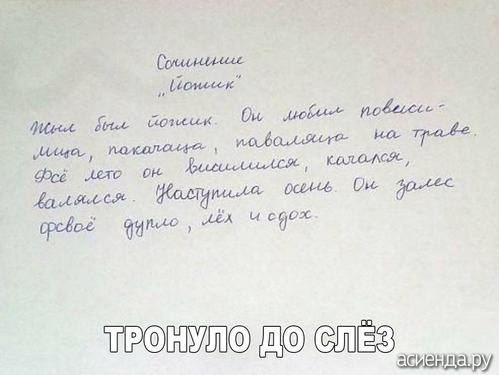 Сочинение
„Йожик"
Жыл был йожик. Он любил повеси-
лица, пакачаца, паваляца на траве.
Фсё лето он висилился, качался,
валялся. Наступила осень. Он залес
фсваё дупло, лёх и сдох.
ТРОНУЛО ДО СЛЁЗ
асиенда.ру